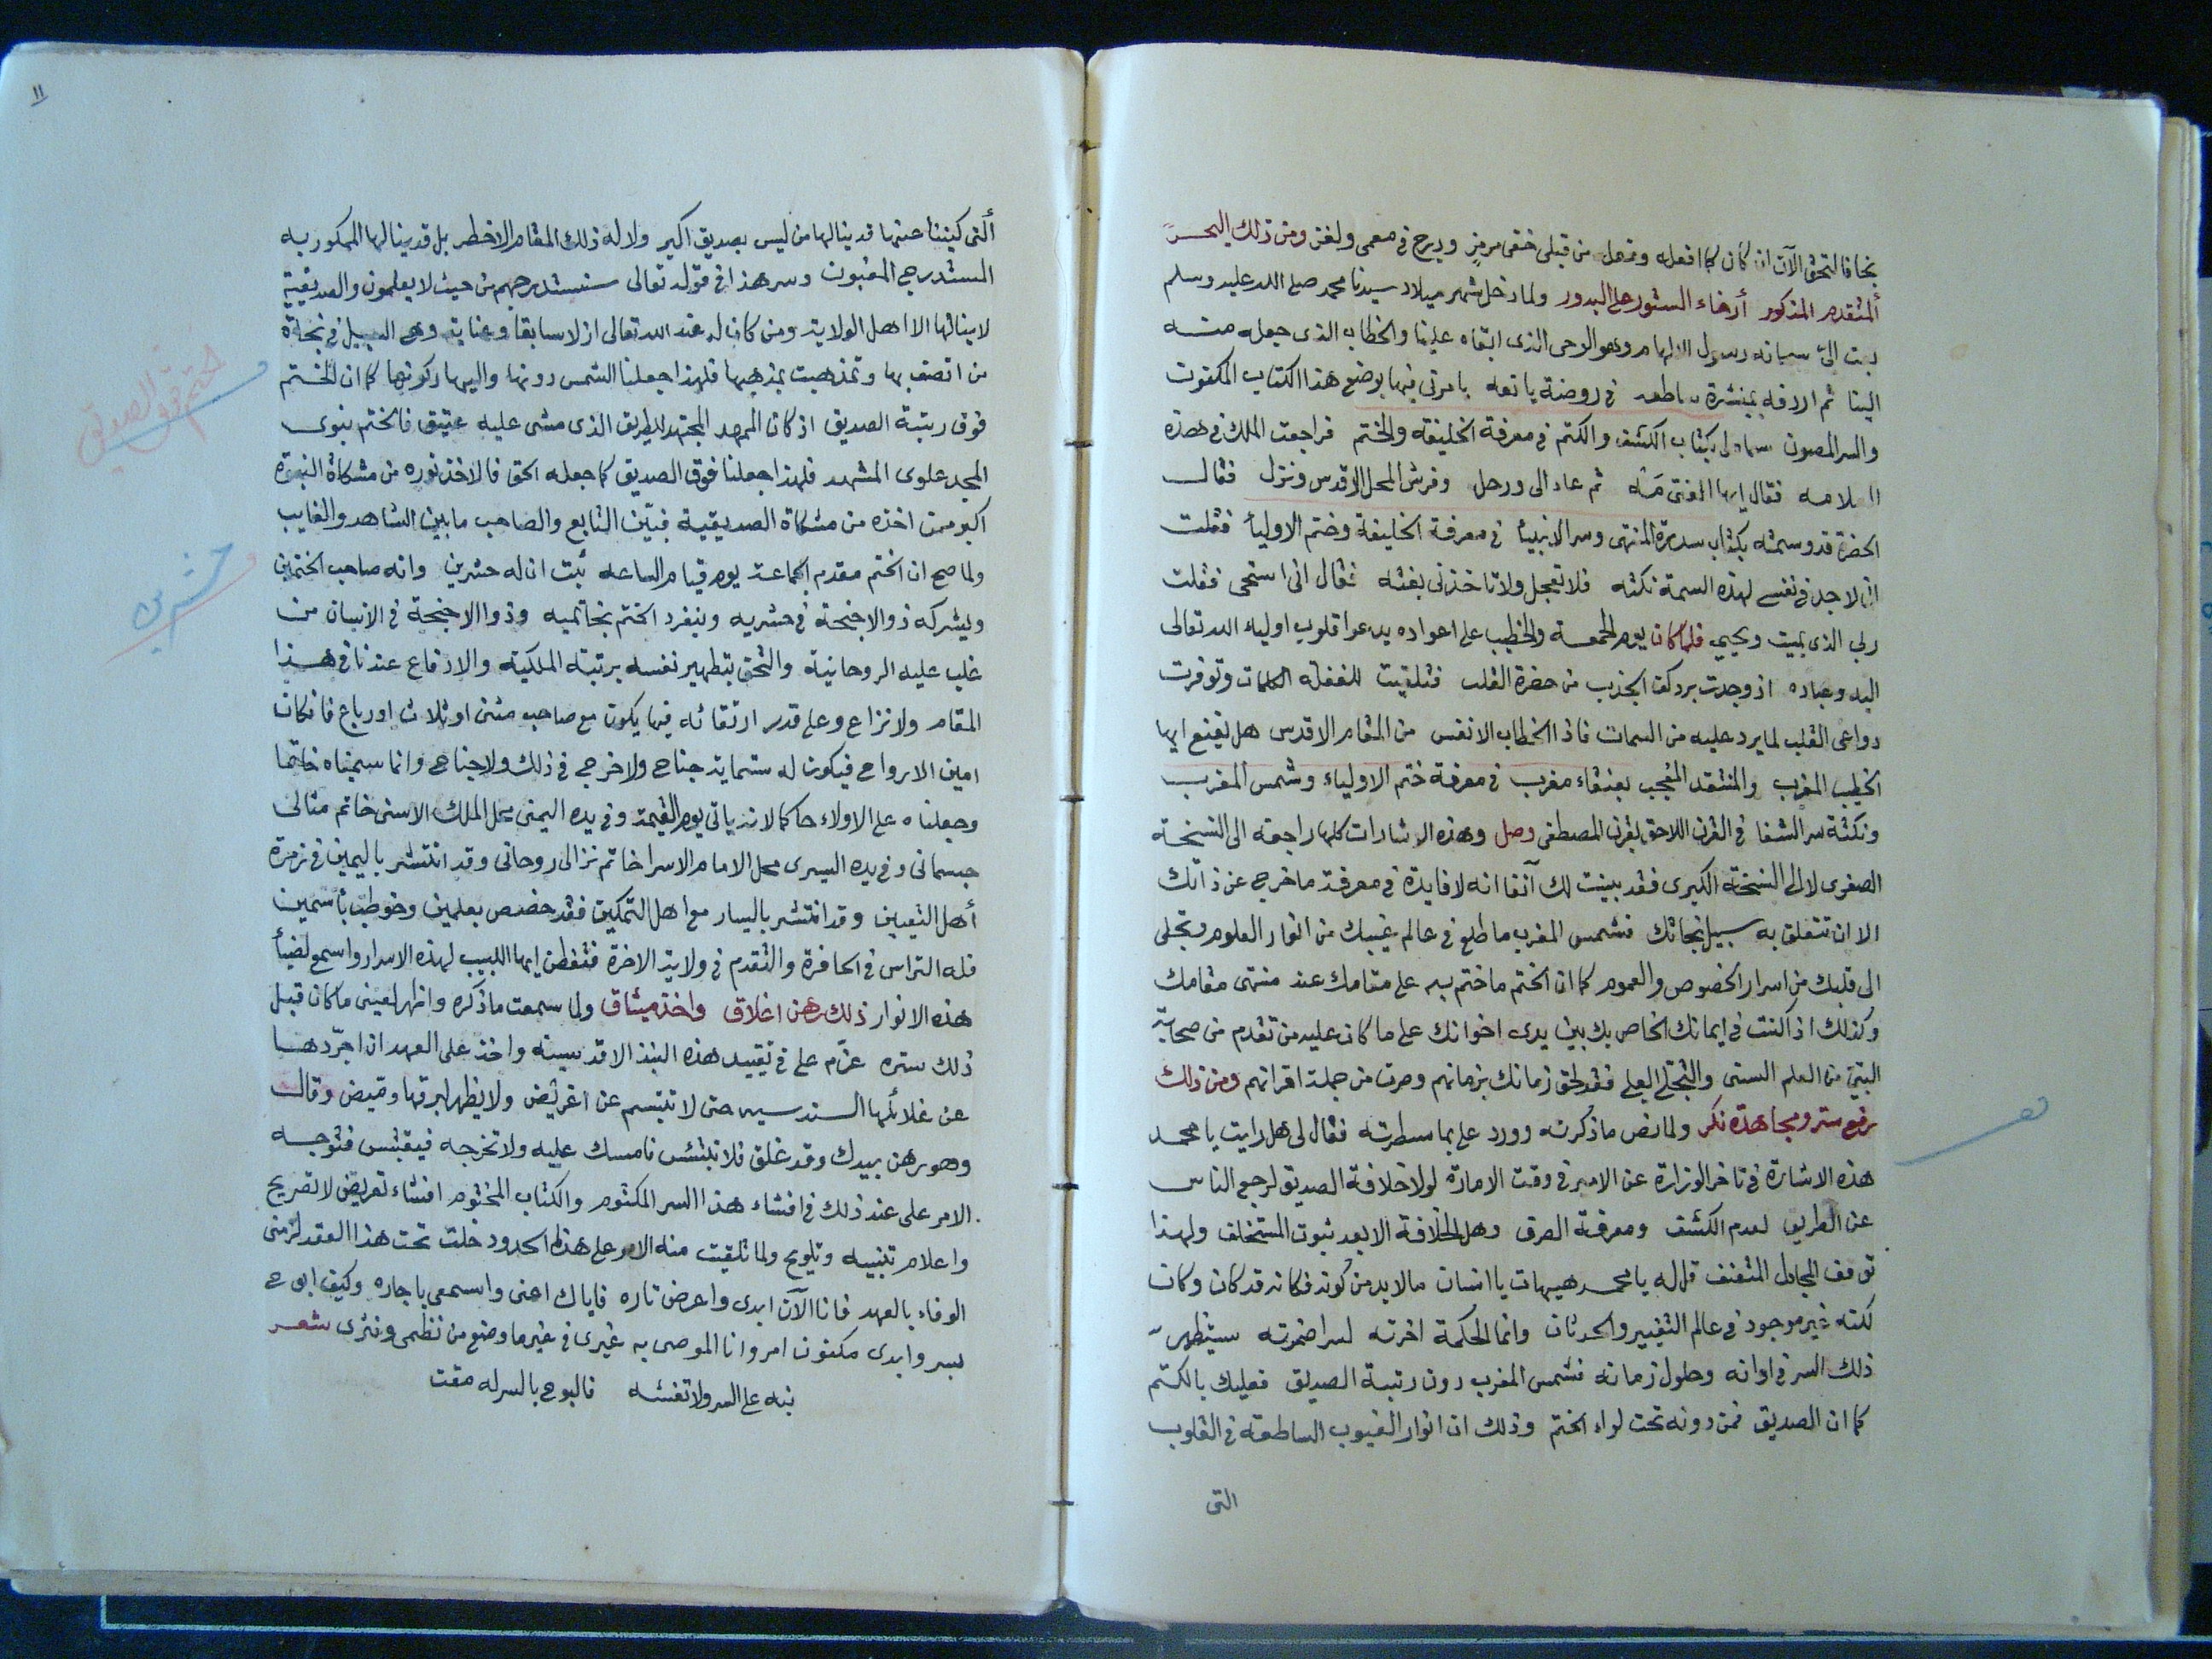 بخافا لتحق الآن ان كان كما فعله وتعمل من قبلى خفى مرمز ودرج فى معمى ولغز ومن ذلك البحر
المتقدم المذكور أرخاء الستور على البدور ولما دخل شهر ميلاد سيدنا محمد صلى الله عليه وسلم
بعث الىّ سبحانه رسول الالهام وهو الوحى الذى ابقاه علينا والخطاب الذى جعله منه
الينا ثم اردفه بمبشرة ساطعه فى روضة يانعه يامرنى فيها بوضع هذا الكتاب المكنون
والسر المصون سماه لى بكتاب الكشف والكتم فى معرفة الخليفه والختم فراجعت الملك فى هذه
العلامه فقال ايها الفتى مَه ثم عاد الى ورحل وفرش المحل الاقدس ونزل فقال
الحضرة قد وسمته بكتاب سدرة المنتهى وسر الانبيأ فى معرفة الخليفة وختم الاوليأ فقلت
انى لاجد فى نفسى لهذه السمة نكته فلا تعجل ولا تاخذنى بغته فقال انى استحى فقلت
ربى الذى يميت ويحيى فلما كان يوم الجمعة والخطيب على اعواده يدعوا قلوب اولياء الله تعالى
اليه وعباده اذ وجدت برد كف الجذب من حضرة القلب فتلقيت للغفله الكلمات وتوفرت
دواعى القلب لما يرد عليه من السمات فاذا الخطاب الانفس من المقام الاقدس هل يقنع ايها
الخطيب المغرب والمنتقد المعجب بعنقاء مغرب فى معرفة ختم الاولياء وشمس المغرب
ونكتة سر الشفا فى القرن اللاحق بقرن المصطفى وصل وهذه الاشارات كلها راجعه الى النسخة
الصغرى لا الى النسخة الكبرى فقد بينت لك آنفا انه لا فايدة فى معرفة ما خرج عن ذاتك
الا ان تتعلق به سبيل نجاتك فشمس المغرب ما طلع فى عالم غيبك من انوار العلوم وتجلى
الى قلبك من اسرار الخصوص والعموم كما ان الختم ما ختم به على مقامك عند منتهى مقامك
وكذلك اذا كنت فى ايمانك الخاص بك بين يدى اخوانك على ما كان عليه من تقدم من صحابة
النبىّ من العلم السنى والتجلى العلى فقد لحق زمانك بزمانهم وصرت من جملة اقرانهم ومن ذلك
رفع ستر ومجاهدة نكر ولما نص ما ذكرته وورد على بما سطرته فقال لى هل رايت يا محمد
هذه الاشارة فى تاخر الوزارة عن الامير فى وقت الامارة لولا خلافة الصديق لرجع الناس
عن الطريق لعدم الكشف ومعرفة الصرف وهل الخلافة الا بعد ثبوت المستخلف ولهذا
توقف المجادل المتعنف قل له يا محمد هيهات يا انسان ما لا بد من كونه فكانه قد كان وكان
لكنه غير موجود فى عالم التغيير والحدثان وانما الحكمة اخرته لسر اضمرته سيظهر
ذلك السر فى اوانه وحلول زمانه فشمس المغرب دون رتبة الصديق فعليك بالكتم
كما ان الصديق فمن دونه تحت لواء الختم وذلك ان انوار الغيوب الساطعة فى القلوب
التى
١١
ألتى كنينا عنها قد ينالها من ليس بصديق اكبر ولا له ذلك المقام الاخطر بل قد ينالها الممكور به
المستدرج المغبون وسر هذا فى قوله تعالى سنستدرجهم من حيث لا يعلمون والصديقية
لا ينالها الا اهل الولاية ومن كان له عند الله تعالى ازلا سابقا وعناية وهى السبيل فى نجاة
من اتصف بها وتمذهب بمذهبها فلهذا جعلنا الشمس دونها واليها ركونها كما ان للختم
فوق رتبة الصديق اذ كان الممهد المجتهد للطريق الذى مشى عليه عتيق فالختم نبوى
المجد علوى المشهد فلهذا جعلناه فوق الصديق كما جعله الحق فالاخذ نوره من مشكاة النبوة
اكبر ممن اخذه من مشكاة الصديقية فبيّن التابع والصاحب ما بين الشاهد والغايب
ولما صح ان الختم مقدم الجماعة يوم قيام الساعه ثبت ان له حشرين وانه صاحب الختمين
ويشركه ذو الاجنحة فى حشريه وينفرد الختم بخاتميه وذو الاجنحة فى الانسان من
غلب عليه الروحانية والتحق بتطهير نفسه برتبته الملكيته والارتفاع عندنا فى هذا
المقام ولا نزاع وعلى قدر ارتقائه فيها يكون مع صاحب مثنى او ثلاث او رباع فان كان
امين الارواح فيكون له ستماية جناح ولا خرج فى ذلك ولا جناح وانما سميناه خاتما
وجعلناه على الاولاء حاكما لانه ياتى يوم القيمة وفى يده اليمنى محل الملك الاسنى خاتم مثالى
جسمانى وفى يده اليسرى محل الامام الاسرا خاتم نزالى روحانى وقد انتشر باليمين فى زمرة
أهل التعيين وقد انتشر باليسار مع اهل التمكين فقد خصص بعلمين وخوطب باسمين
فله التراس فى الحافرة والتقدم فى ولاية الاخرة فتفطن ايها اللبيب لهذه الاسرار واسمع لضيأ
هذه الانوار ذلك رهن اغلاق واخذ ميثاق ولما سمعت ما ذكره واظهر لعينى ما كان قبل
ذلك ستره عزّم على فى تقييد هذه النبذ الاقدسيه واخذ على العهد ان اجرّدها
عن غلائلها السندسيه حتى لا تبتسم عن اغريض ولا يظهر لبرقها وميض وقال
وهو رهن بيدك وقد غلق فلا تبتئس فامسك عليه ولا تخرجه فيقتبس فتوجه
الامر على عند ذلك فى افشاء هذا السر المكتوم والكتاب المختوم افشاء تعريض لا تصريح
واعلام تنبيه وتلويح ولما تلقيت منه الامر على هذا الحدود خلت تحت هذا العقد لزمنى
الوفاء بالعهد فانا الآن ابدى واعرض تاره فاياك اعنى واسمعى يا جاره وكيف ابوح
بسر وابدى مكنون امر وانا الموصى به غيرى فى غير ما وضع من نظمى ونثرى شعر
نبه على السر ولا تفشه فالبوح بالسر له مقت
ختم فوق الصديق
حشرين